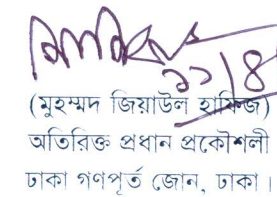 ১১/৪
(মুহম্মদ জিয়াউল হাফিজ)
অতিরিক্ত প্রধান প্রকৌশলী
ঢাকা গণপূর্ত জোন, ঢাকা।